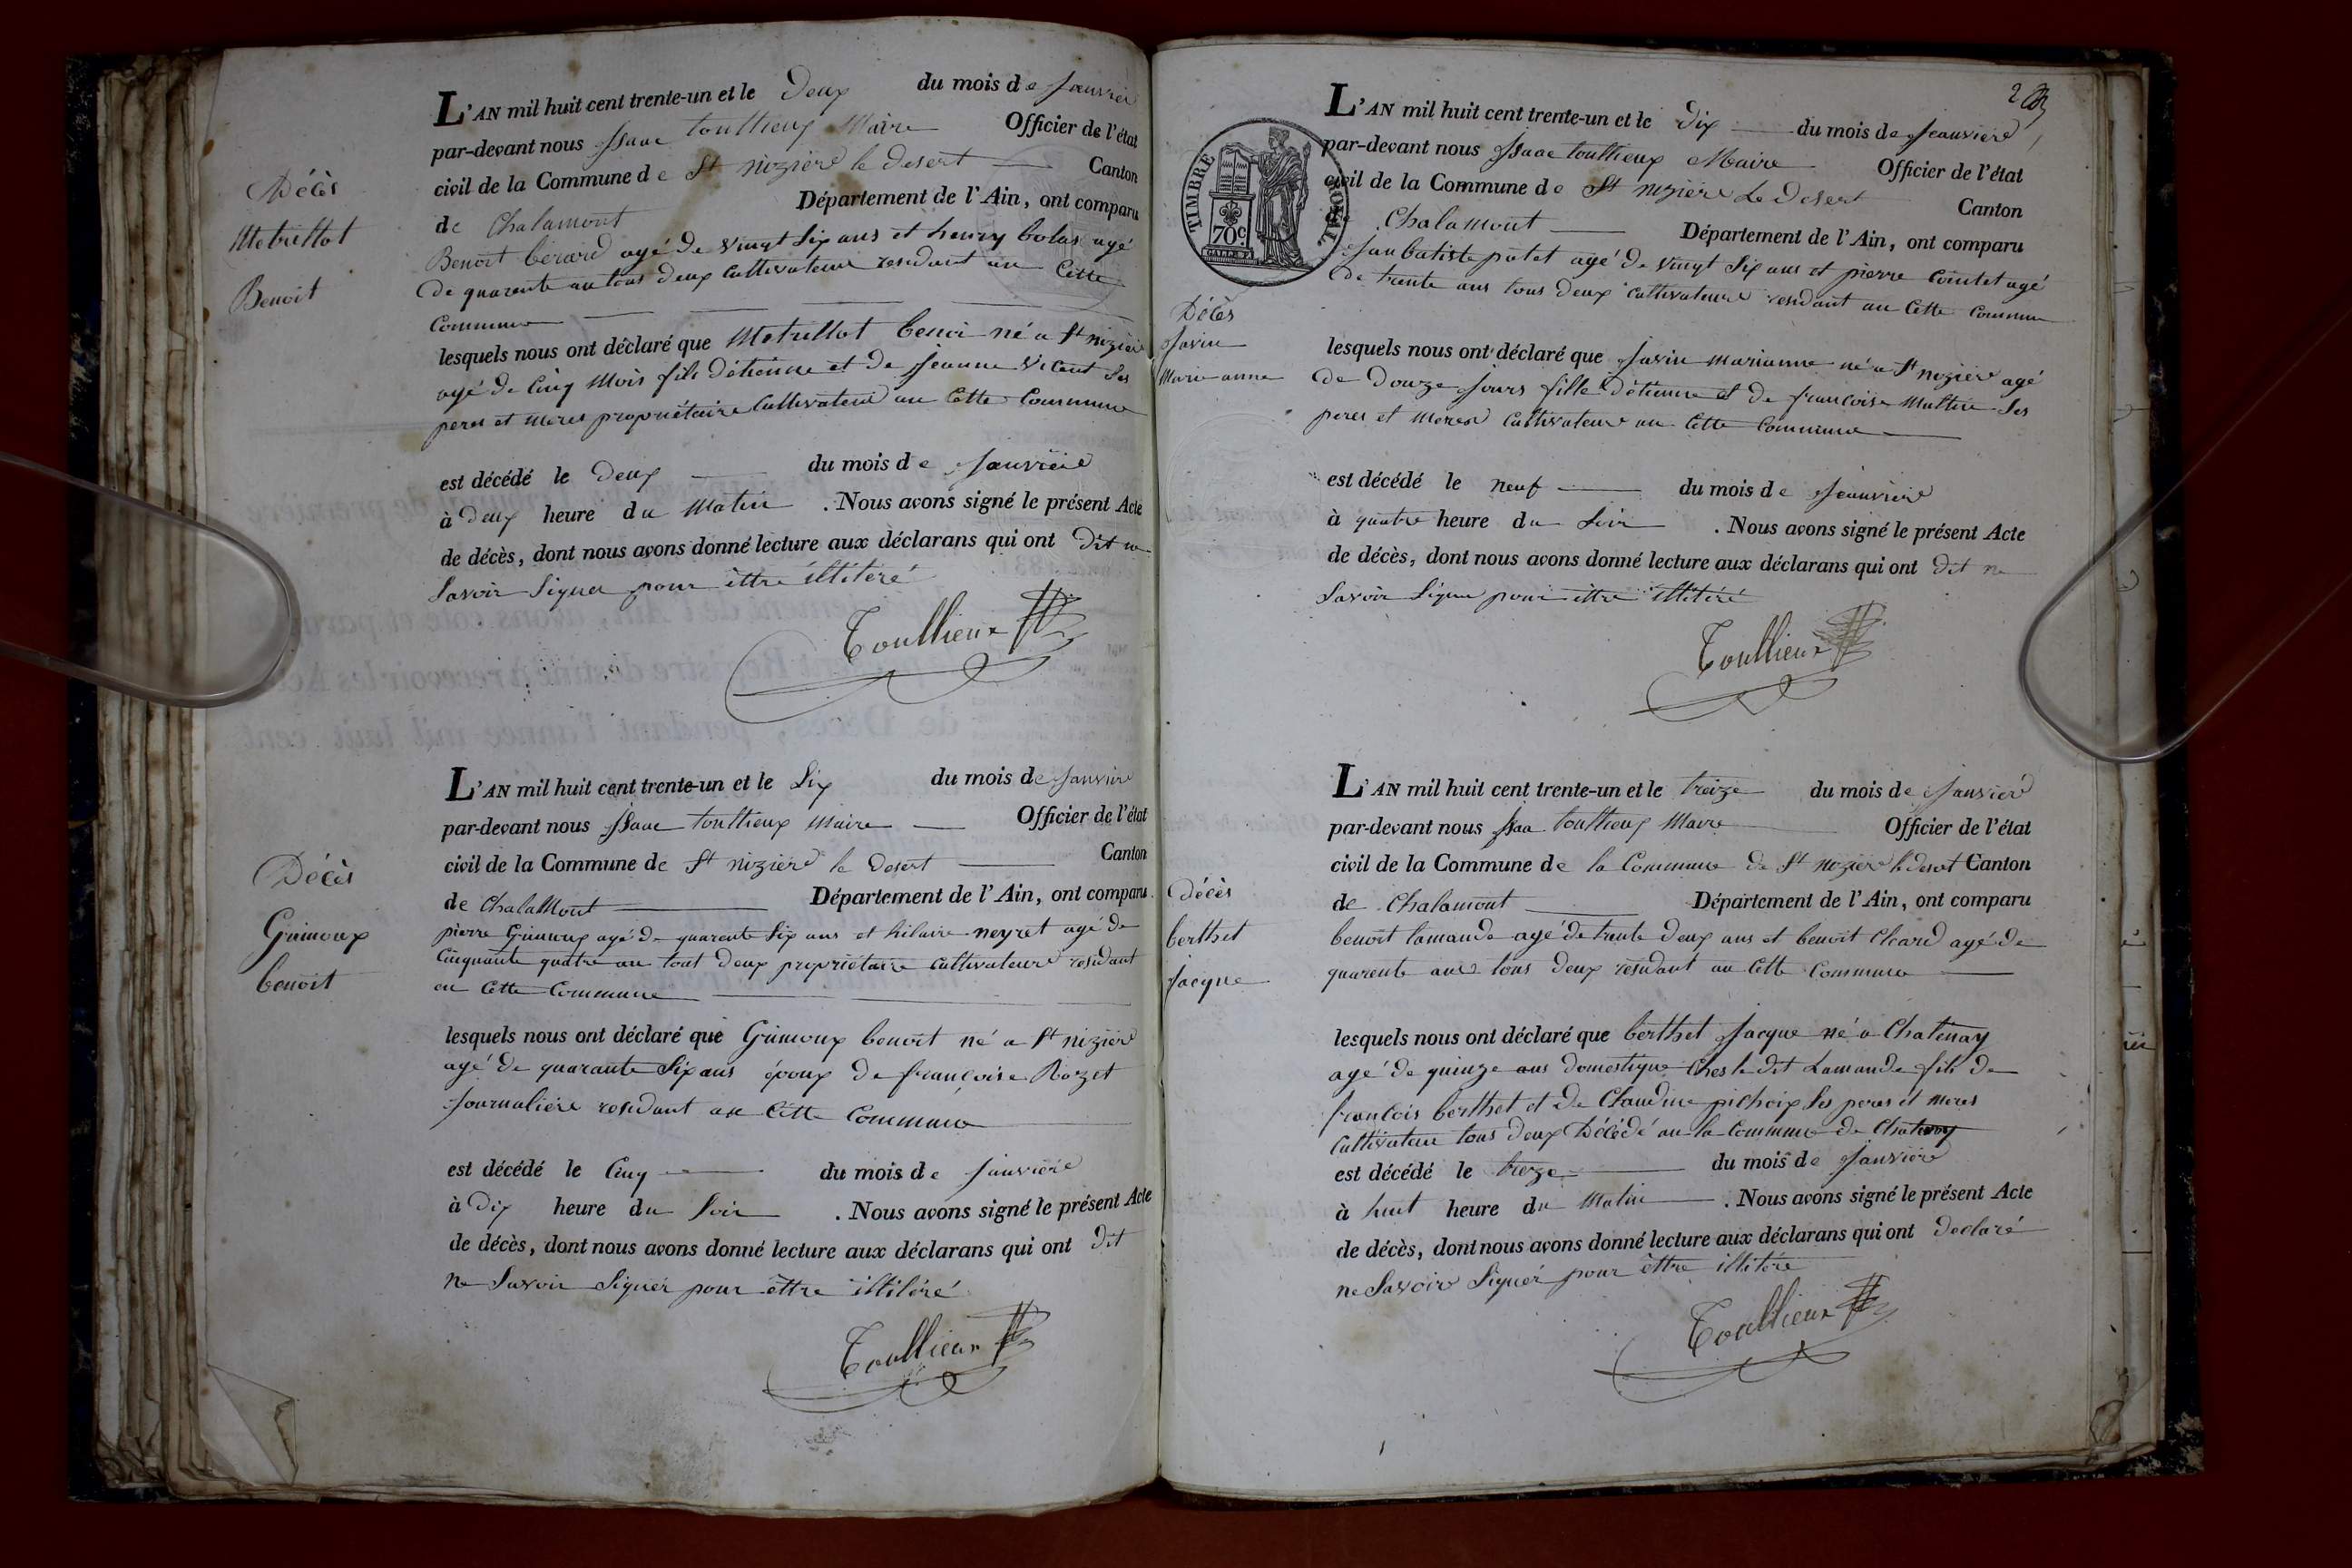 L'AN mil huit cent trente-un et le Deux du mois de Janvier
par-devant nous Isaac toullieux Maire Officier de l'état
civil de la Commune de St nizière le desert Canton
de Chalamont Département de l'Ain, ont comparu
Benoit berard agé de vingt six ans et henry bolas agé
de quarente an tous deux cultivateur residant an Cette
Commune
Décès
Metrillot
Benoit
lesquels nous ont déclaré que Metrillot benoi né a St nizière
agé de Cinq Mois fils d'étienne et de Jeanne Vicent ses
peres et meres propriétaire Cultivateur an Cette Commune
est décédé le deux du mois de Janvière
à deux heure du Matin . Nous avons signé le présent Acte
de décès, dont nous avons donné lecture aux déclarans qui ont dit ne
savoir signer pour ettre illitéré
Toullieux
L'AN mil huit cent trente-un et le Six du mois de Janvière
par-devant nous Isaac toullieux Maire Officier de l'état
civil de la Commune de St nizière le desert Canton
de Chalamont Département de l'Ain, ont comparu
pierre Guimoux agé de quarente six ans et hilaire neyret agé de
Cinquante quatre an tout deux propriétaire cultivateure residant
en Cette Commune
Décès
Guimoux
benoit
lesquels nous ont déclaré que Guimoux benoit né a St nizière
agé de quarante six ans époux de françoise Rozet
Journalière residant an Cette Commune
est décédé le Cinq du mois de Janvière
à Dix heure du Soir . Nous avons signé le présent Acte
de décès, dont nous avons donné lecture aux déclarans qui ont dit
ne Savoir Signér pour êttre illitéré
Toullieux
2
L'AN mil huit cent trente-un et le Dix du mois de Jeanvière
par-devant nous Isaac toullieux Maire Officier de l'état
civil de la Commune de St nizière Le Desert Canton
de Chalamont Département de l'Ain, ont comparu
Jan batiste potet agé de vingt six ans et pierre Comtet agé
de trente ans tous deux cultivateure residant an Cette Commune
TIMBRE ROYAL
70c.
Décès
Javin
Marie anne
lesquels nous ont déclaré que Javin marianne né a St nizière agé
de Douze Jours fille d'étienne et de françoise Mattin ses
peres et meres Cultivateur an Cette Commune
est décédé le neuf du mois de Jeanvière
à quatre heure du Soir . Nous avons signé le présent Acte
de décès, dont nous avons donné lecture aux déclarans qui ont dit ne
Savoir Signer pour êttre illitéré
Toullieux
L'AN mil huit cent trente-un et le treize du mois de Janvière
par-devant nous Isaa toullieux Maire Officier de l'état
civil de la Commune de la Commune de St nizière le desert Canton
de Chalamont Département de l'Ain, ont comparu
benoit lamande agé de trente deux ans et benoit Cleard agé de
quarente ans tous deux résidant an Cette Commune
Décès
berthet
Jacque
lesquels nous ont déclaré que berthet Jacque né a Chatenay
agé de quinze ans domestique Ches le dit Lamande fils de
francois berthet et de Claudine pichoix ses peres et meres
Cultivateur tous deux Décédé an la Commune de Chatenay
est décédé le treze du mois de Janvière
à huit heure du Matin . Nous avons signé le présent Acte
de décès, dont nous avons donné lecture aux déclarans qui ont declaré
ne Savoir Signér pour êttre illitére
Toullieux